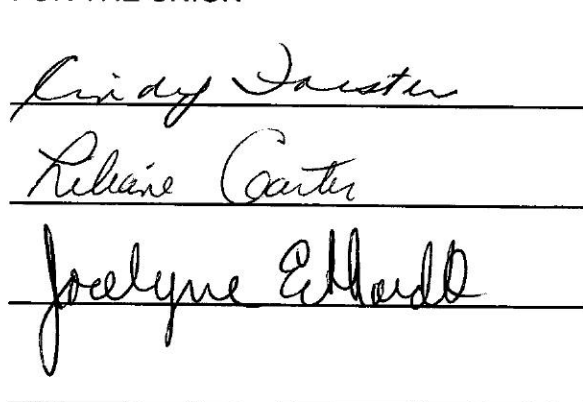 FOR THE UNION
Cindy Forster
Liliane Carter
Jocelyne